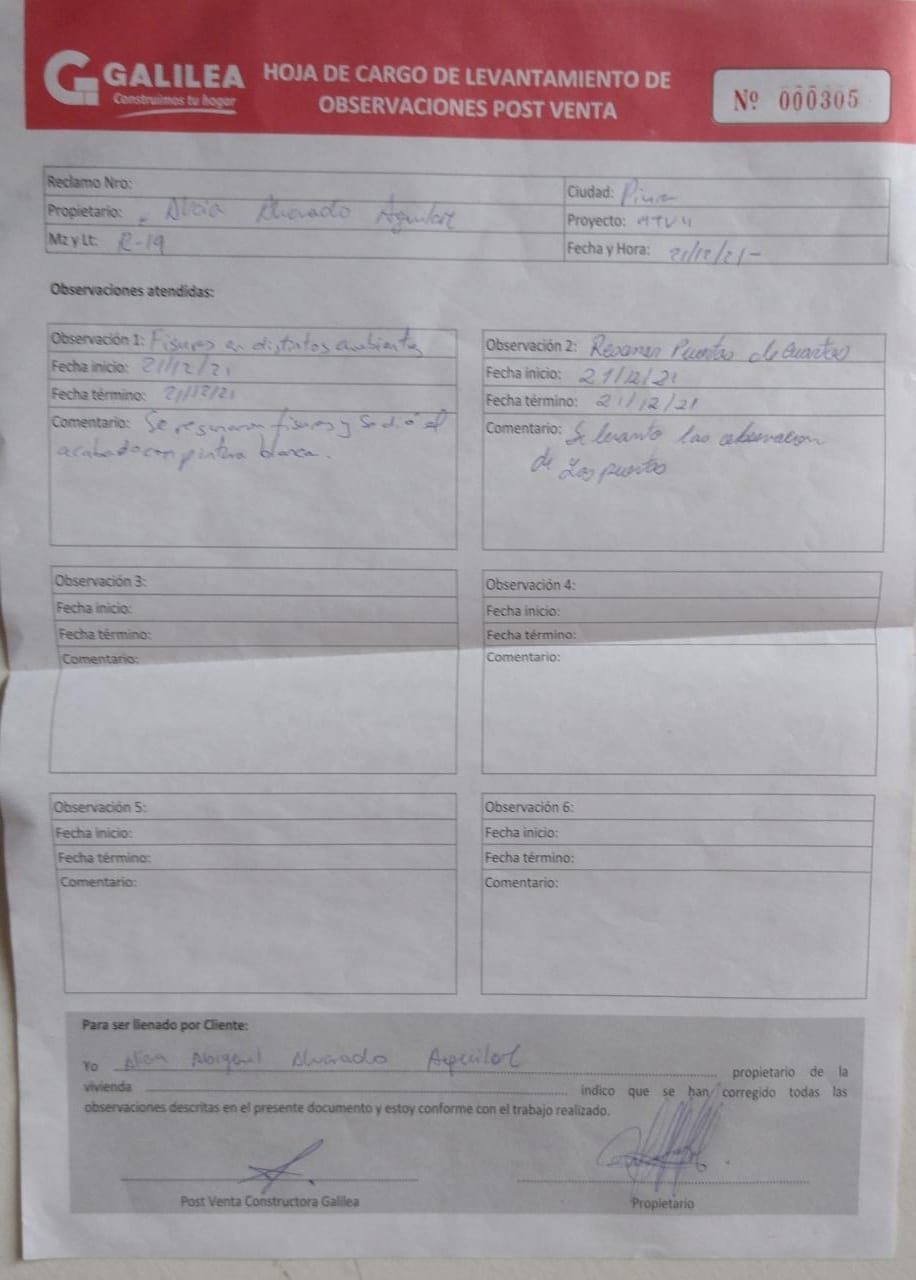 GALILEA
Construimos tu hogar
HOJA DE CARGO DE LEVANTAMIENTO DE
OBSERVACIONES POST VENTA
Nº 000305
Reclamo Nro:
Ciudad: Piura
Propietario: Alvarado Aguilar
Proyecto:
Mz y Lt: R-19
Fecha y Hora: 21/12/21-
Observaciones atendidas:
Observación 1: Fisuras en distintos ambientes
Fecha inicio: 21/12/21
Fecha término: 21/12/21
Comentario: Se resanaron fisuras y se dió el
acabado con pintura blanca.
Observación 2: Resanar Puertas de Cuartos
Fecha inicio: 21/12/21
Fecha término: 21/12/21
Comentario: Se levanto las observacion
de Las puertas
Observación 3:
Fecha inicio:
Fecha término:
Comentario:
Observación 4:
Fecha inicio:
Fecha término:
Comentario:
Observación 5:
Fecha inicio:
Fecha término:
Comentario:
Observación 6:
Fecha inicio:
Fecha término:
Comentario:
Para ser llenado por Cliente:
Yo Abigail Alvarado Aguilar propietario de la
vivienda indico que se han corregido todas las
observaciones descritas en el presente documento y estoy conforme con el trabajo realizado.
Post Venta Constructora Galilea
Propietario